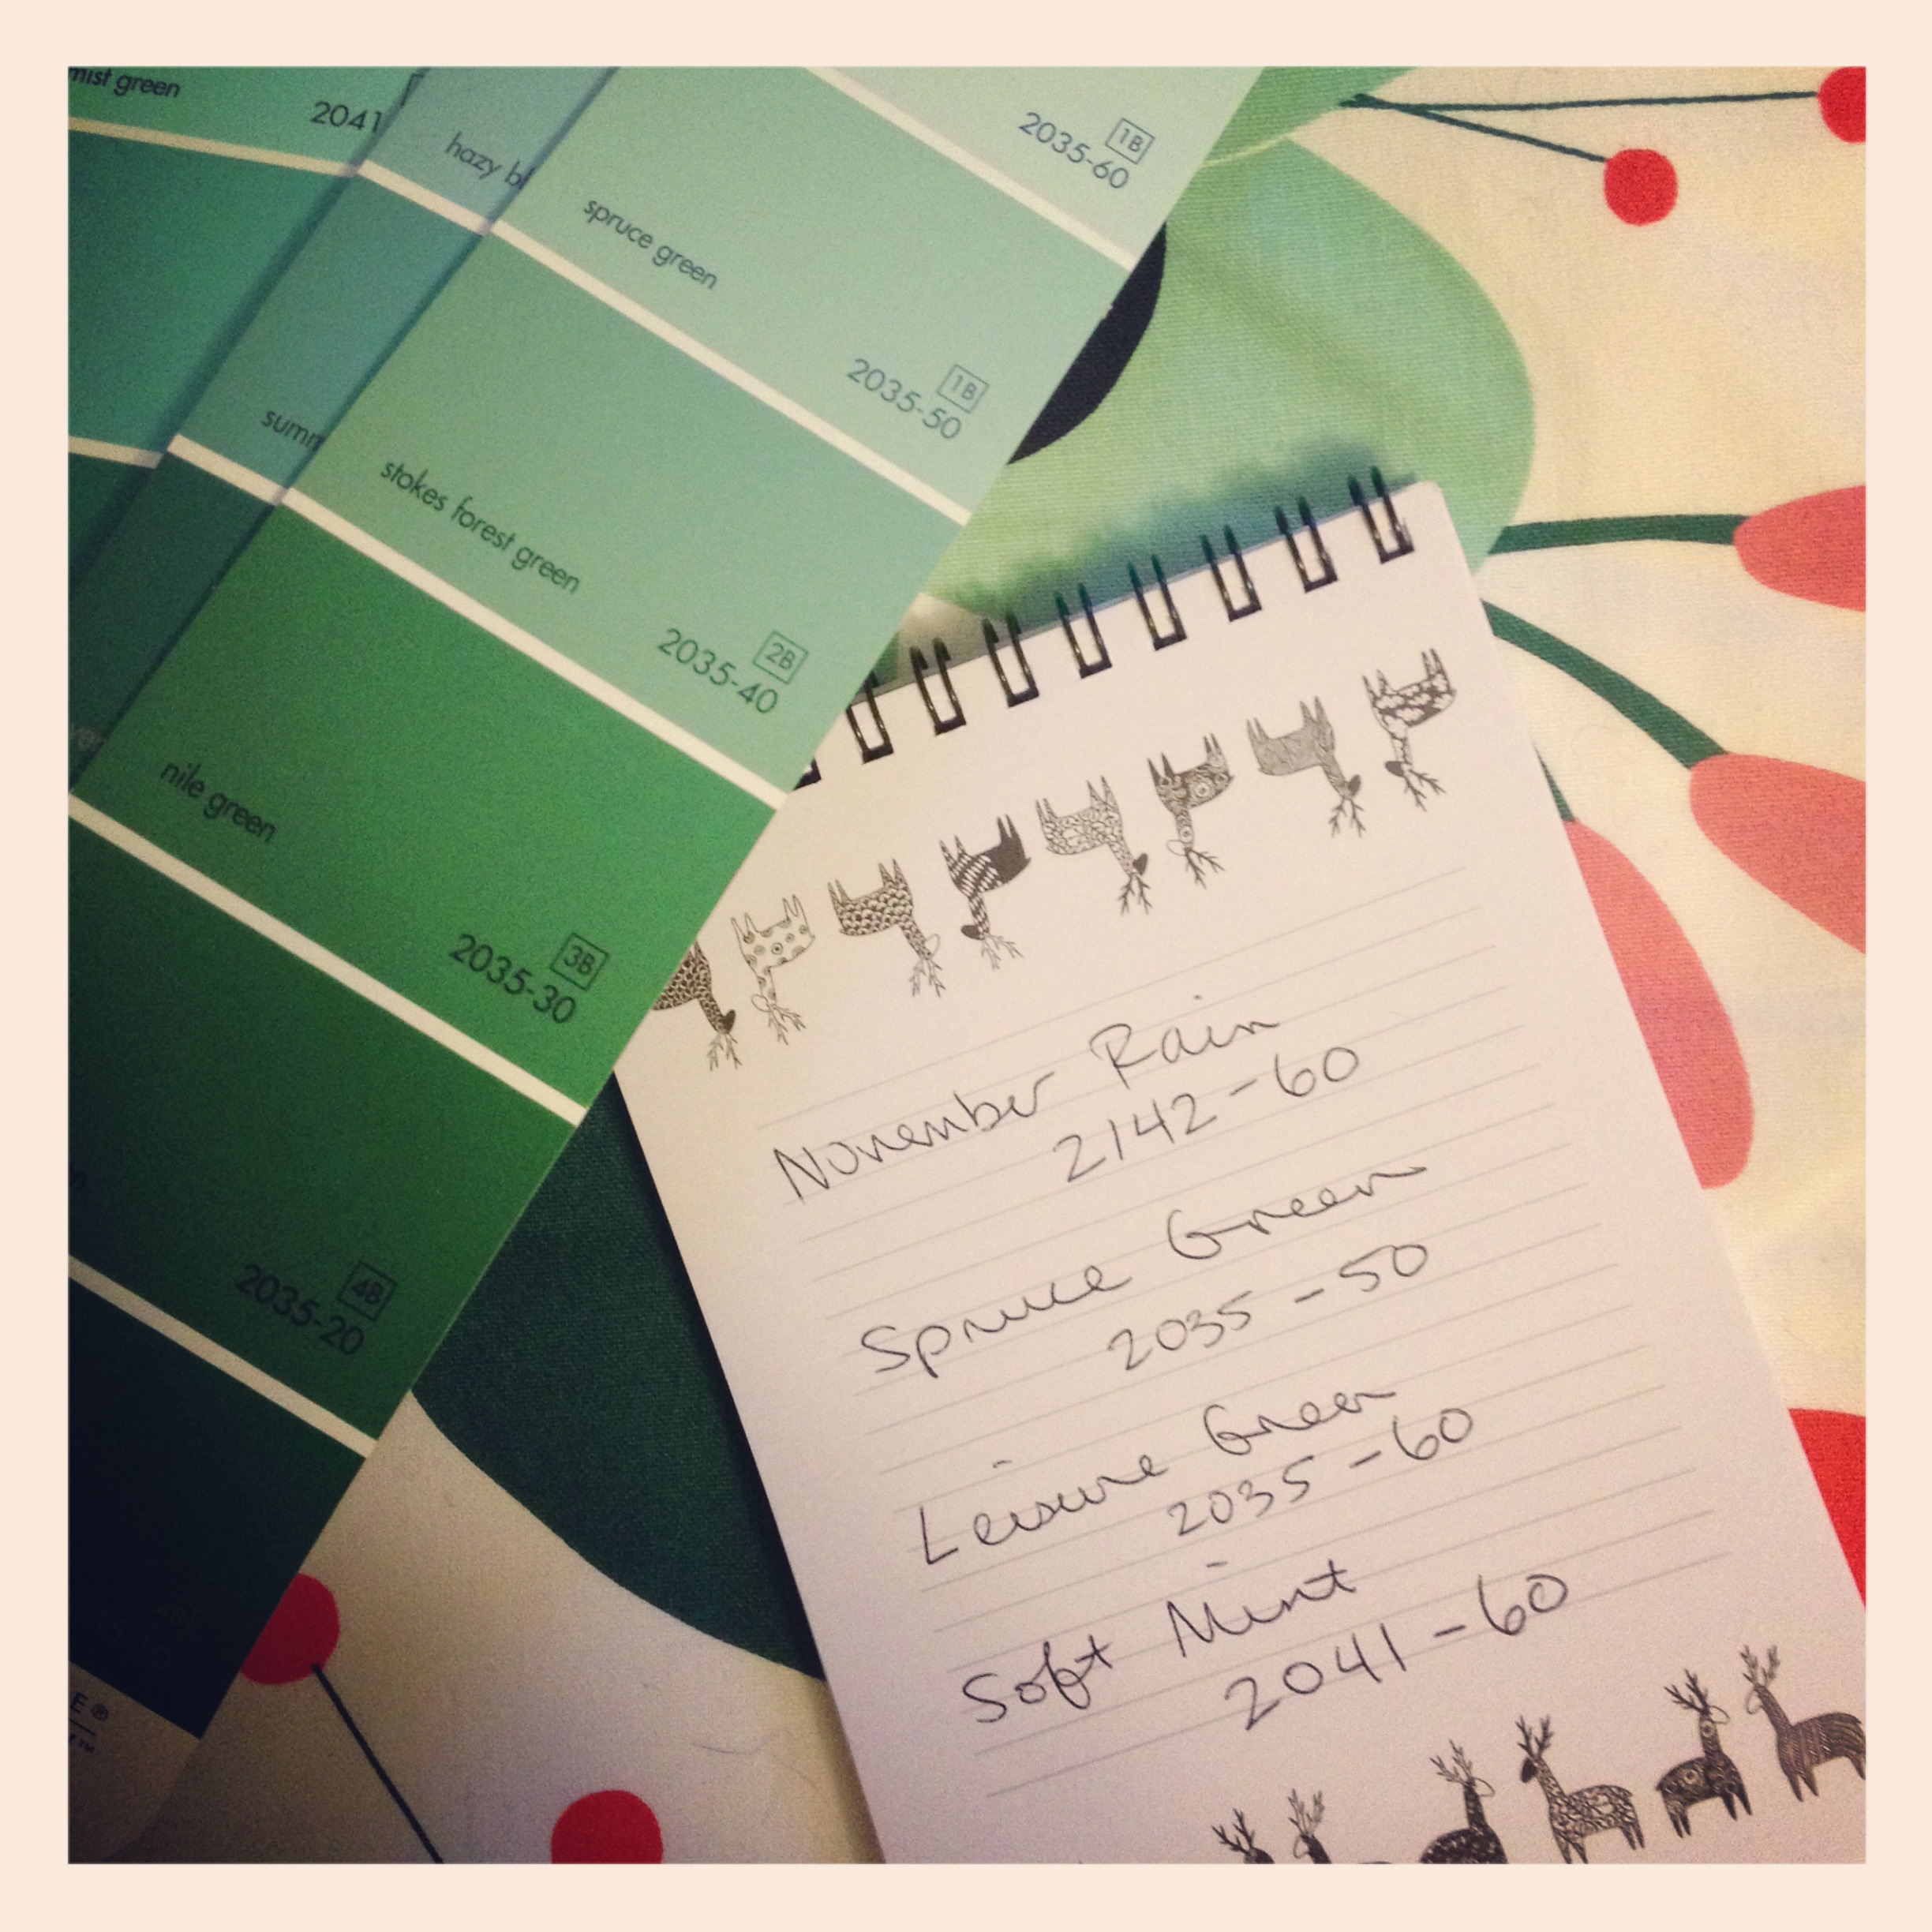 mist green
2041
hazy bl
summ
1B
2035-60
spruce green
1B
2035-50
stokes forest green
2B
2035-40
nile green
3B
2035-30
4B
2035-20
E®
November Rain
2142-60
Spruce Green
2035-50
Leisure Green
2035-60
Soft Mint
2041-60